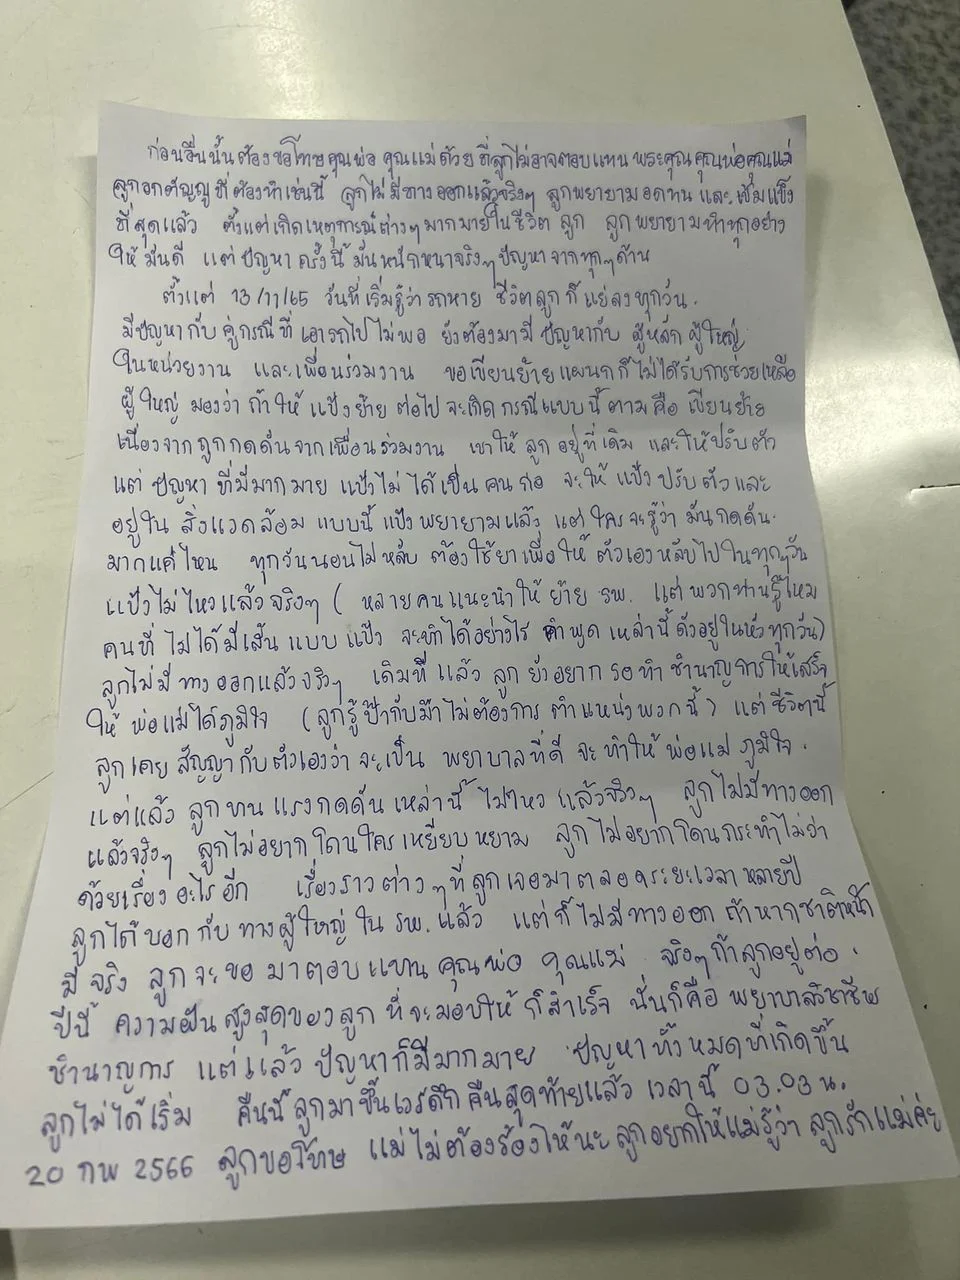 ก่อนอื่นนั้นต้องขอโทษคุณพ่อ คุณแม่ด้วย ที่ลูกไม่อาจตอบแทน พระคุณคุณพ่อคุณแม่
ลูกอกตัญญูที่ต้องทำเช่นนี้ ลูกไม่มีทางออกแล้วจริงๆ ลูกพยายามอดทน และเข้มแข็ง
ที่สุดแล้ว ตั้งแต่เกิดเหตุการณ์ต่างๆมากมายในชีวิต ลูก ลูกพยายามทำทุกอย่าง
ให้มันดี แต่ปัญหาครั้งนี้มันหนักหนาจริงๆ ปัญหาจากทุกๆด้าน
ตั้งแต่ 13/11/65 วันที่เริ่มรู้ว่ารถหาย ชีวิตลูกก็แย่ลงทุกวัน.
มีปัญหากับคู่กรณีที่เอารถไปไม่พอ ยังต้องมามีปัญหากับ ผู้หลักผู้ใหญ่
ในหน่วยงาน และเพื่อนร่วมงาน ขอเขียนย้ายแผนกก็ไม่ได้รับการช่วยเหลือ
ผู้ใหญ่ มองว่า ถ้าให้ แป้งย้าย ต่อไปจะเกิดกรณีแบบนี้ตามคือ เขียนย้าย
เนื่องจากถูกกดดันจากเพื่อนร่วมงาน เขาให้ลูกอยู่ที่เดิม และให้ปรับตัว
แต่ ปัญหาที่มีมากมาย แป้งไม่ได้เป็นคนก่อ จะให้ แป้งปรับตัวและ
อยู่ใน สิ่งแวดล้อม แบบนี้ แป้งพยายามแล้ว แต่ใครจะรู้ว่า มันกดดัน.
มากแค่ไหน ทุกวันนอนไม่หลับ ต้องใช้ยาเพื่อให้ ตัวเองหลับไปในทุกๆวัน
แป้งไม่ไหวแล้วจริงๆ ( หลายคนแนะนำให้ย้าย รพ. แต่พวกท่านรู้ไหม
คนที่ไม่ได้มีเส้นแบบแป้ง จะทำได้อย่างไร คำพูดเหล่านี้ดังอยู่ในหัวทุกวัน)
ลูกไม่มีทางออกแล้วจริงๆ เดิมทีแล้ว ลูกยังอยากรอทำชำนาญการให้เสร็จ
ให้ พ่อแม่ได้ภูมิใจ (ลูกรู้ป๊ากับม๊าไม่ต้องการ ตำแหน่งพวกนี้) แต่ชีวิตนี้
ลูกเคย สัญญากับตัวเองว่าจะเป็น พยาบาลที่ดี จะทำให้พ่อแม่ภูมิใจ.
แต่แล้ว ลูกทนแรงกดดันเหล่านี้ไม่ไหว แล้วจริงๆ ลูกไม่มีทางออก
แล้วจริงๆ ลูกไม่อยากโดนใครเหยียบหยาม ลูกไม่อยากโดนกระทำไม่ว่า
ด้วยเรื่องอะไรอีก เรื่องราวต่างๆที่ลูกเจอมาตลอดระยะเวลาหลายปี
ลูกได้บอกกับทางผู้ใหญ่ใน รพ.แล้ว แต่ก็ไม่มีทางออก ถ้าหากชาติหน้า
มีจริง ลูกจะขอมาตอบแทน คุณพ่อ คุณแม่ จริงๆถ้าลูกอยู่ต่อ.
ปีนี้ ความฝันสูงสุดของลูก ที่จะมอบให้ก็สำเร็จ นั่นก็คือ พยาบาลวิชาชีพ
ชำนาญการ แต่แล้ว ปัญหาก็มีมากมาย ปัญหาทั้งหมดที่เกิดขึ้น
ลูกไม่ได้เริ่ม คืนนี้ลูกมาขึ้นเวรดึกคืนสุดท้ายแล้ว เวลานี้ 03.03 น.
20 กพ 2566 ลูกขอโทษ แม่ไม่ต้องร้องไห้นะ ลูกอยากให้แม่รู้ว่า ลูกรักแม่ค่ะ